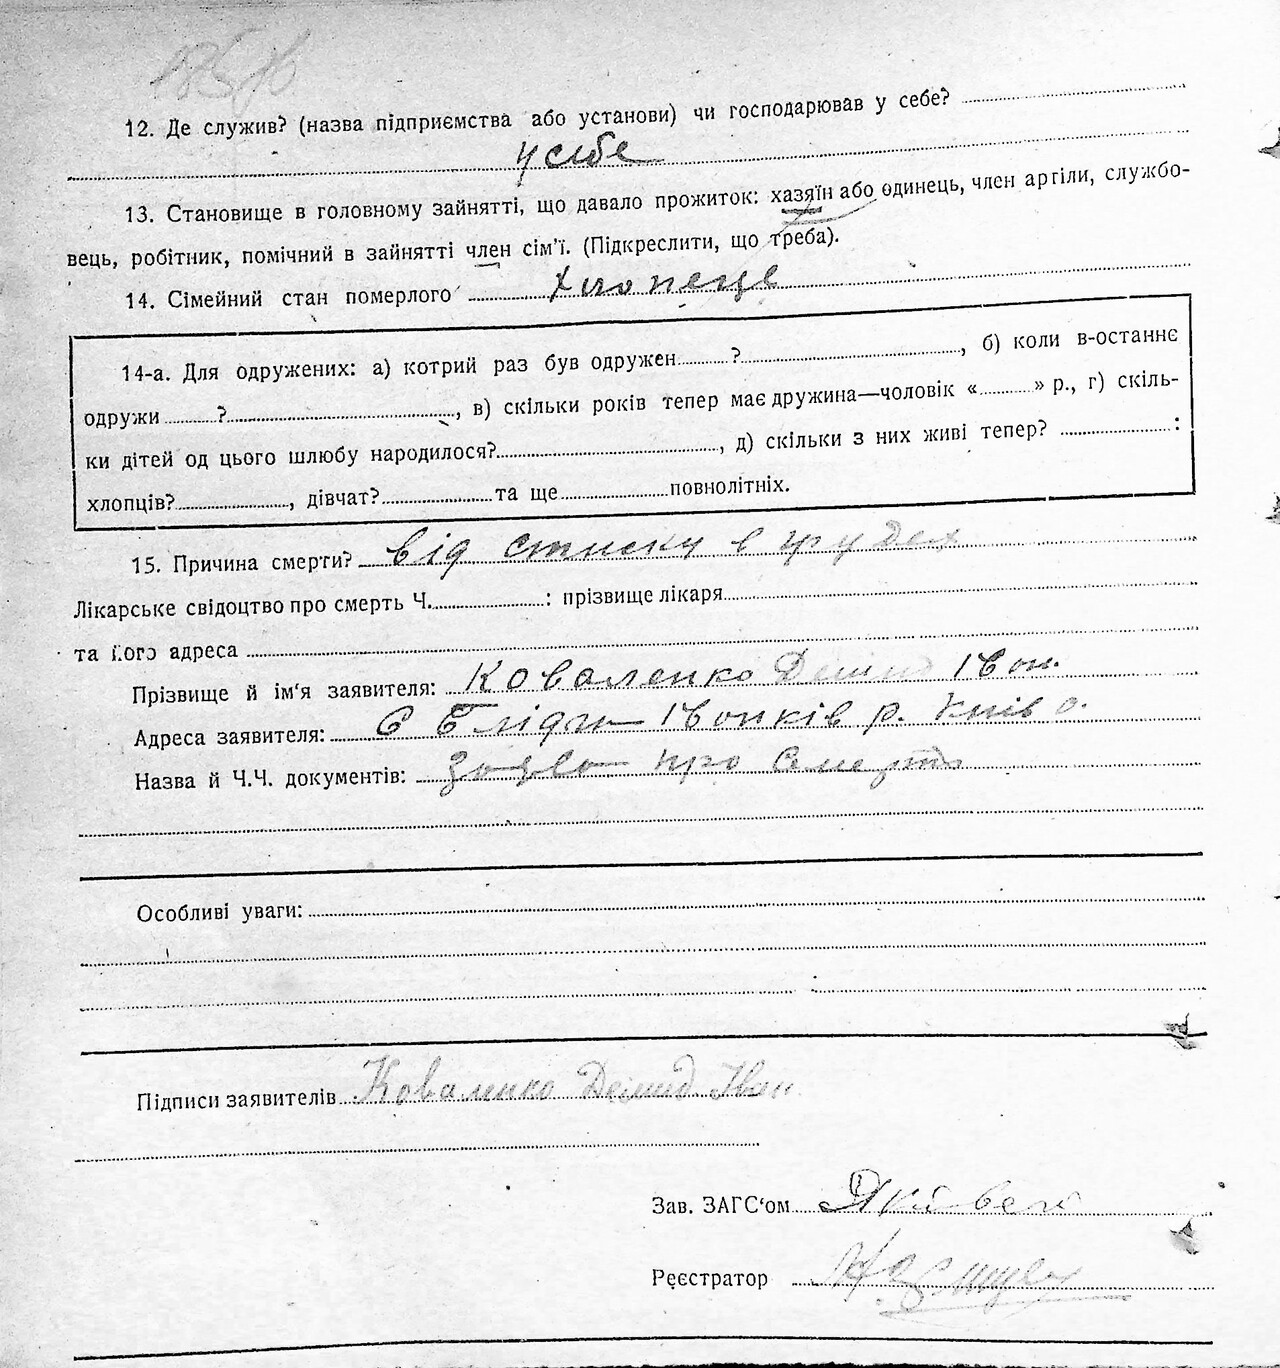 12. Де служив? (назва підприємства або установи) чи господарював у себе?
у себе
13. Становище в головному зайнятті, що давало прожиток: хазяїн або одинець, член артіли, службо-
вець, робітник, помічний в зайнятті член сім'ї. (Підкреслити, що треба).
14. Сімейний стан померлого хлопець
14-а. Для одружених: а) котрий раз був одружен ? , б) коли в-останнє
одружи ? , в) скільки років тепер має дружина—чоловік « » р., г) скіль-
ки дітей од цього шлюбу народилося? , д) скільки з них живі тепер? :
хлопців? , дівчат? та ще повнолітніх.
15. Причина смерти? від стиску в грудех
Лікарське свідоцтво про смерть Ч. : прізвище лікаря
та його адреса
Прізвище й ім'я заявителя: Коваленко Демид Іван.
Адреса заявителя: Іванків р. Київ о.
Назва й Ч.Ч. документів: заява про смерть
Особливі уваги:
Підписи заявителів Коваленко Демид Іван
Зав. ЗАГС'ом
Реєстратор